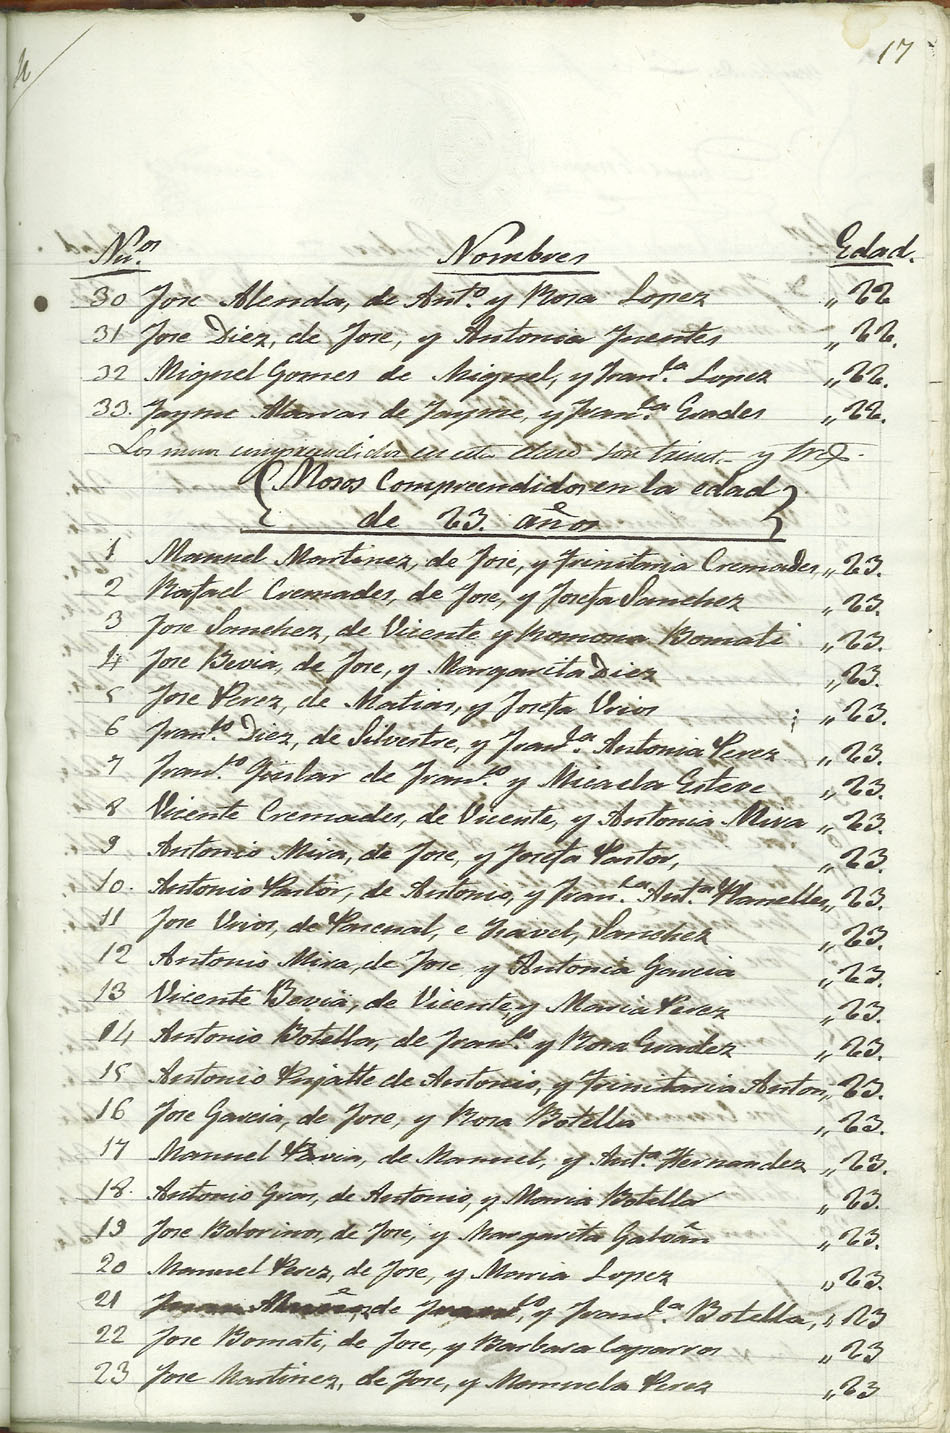 17
Nu.os Nombres Edad.
30 Jose Alenda, de Ant.o y Rosa Lopez „ 22
31 Jose Diez, de Jose, y Antonia Fuentes „ 22.
32 Miguel Gomes de Miguel, y Fran.ca Lopez „ 22.
33. Jayme Alarcos de Jayme, y Fran.ca Guades „ 22.
Los comprendidos en esta son treint y tres.
(Mosos Comprendidos en la edad
de 23. años)
1 Manuel Martinez, de Jose, y Trinitaria Cremades „ 23.
2 Rafael Cremades, de Jose, y Josefa Sanchez „ 23.
3 Jose Sanchez, de Vicente y Romona Bomati „ 23.
4 Jose Bevia, de Jose, y Margarita Diez „ 23.
5 Jose Perez, de Matias, y Josefa Urios „ 23.
6 Fran.co Diez, de Silvestre, y Fran.ca Antonia Perez „ 23.
7 Fran.co de Fran.co y Micaela Esteve „ 23.
8 Vicente Cremades, de Vicente, y Antonia Mira „ 23.
9 Antonio Mira, de Jose, y Josefa Pastor, „ 23.
10. Antonio Pastor, de Antonio, y Fran.ca Ant.a Planelles „ 23.
11 Jose Urios, de Pascual, e Isavel, Sanchez „ 23.
12 Antonio Mira, de Jose y Antonia Garcia „ 23.
13 Vicente Bevia, de Vicente, y Maria Perez „ 23.
14 Antonio Botella, de Fran.co y Rosa Guadez „ 23.
15 Antonio Pujatte de Antonio, y Trinitaria Anton „ 23.
16 Jose Garcia, de Jose, y Rosa Botella „ 23.
17 Manuel Pavia, de Manuel, y Ant.a Hernandez „ 23.
18. Antonio Gras, de Antonio, y Maria Botella „ 23.
19 Jose de Jose, y Margarita Galvañ „ 23.
20 Manuel Perez, de Jose, y Maria Lopez „ 23.
21 de y Fran.ca Botella, „ 23
22 Jose Bomati, de Jose, y Barbara Caparros „ 23
23 Jose Martinez, de Jose, y Manuela Perez „ 23